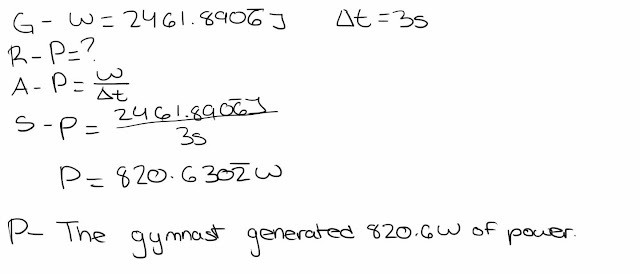 G - W = 2461.8906̅ J Δt = 3s
R - P = ?
A - P = W/Δt
S - P = 2461.8906̅ J / 3s
P = 820.6302̅ W
P - The gymnast generated 820.6W of power.